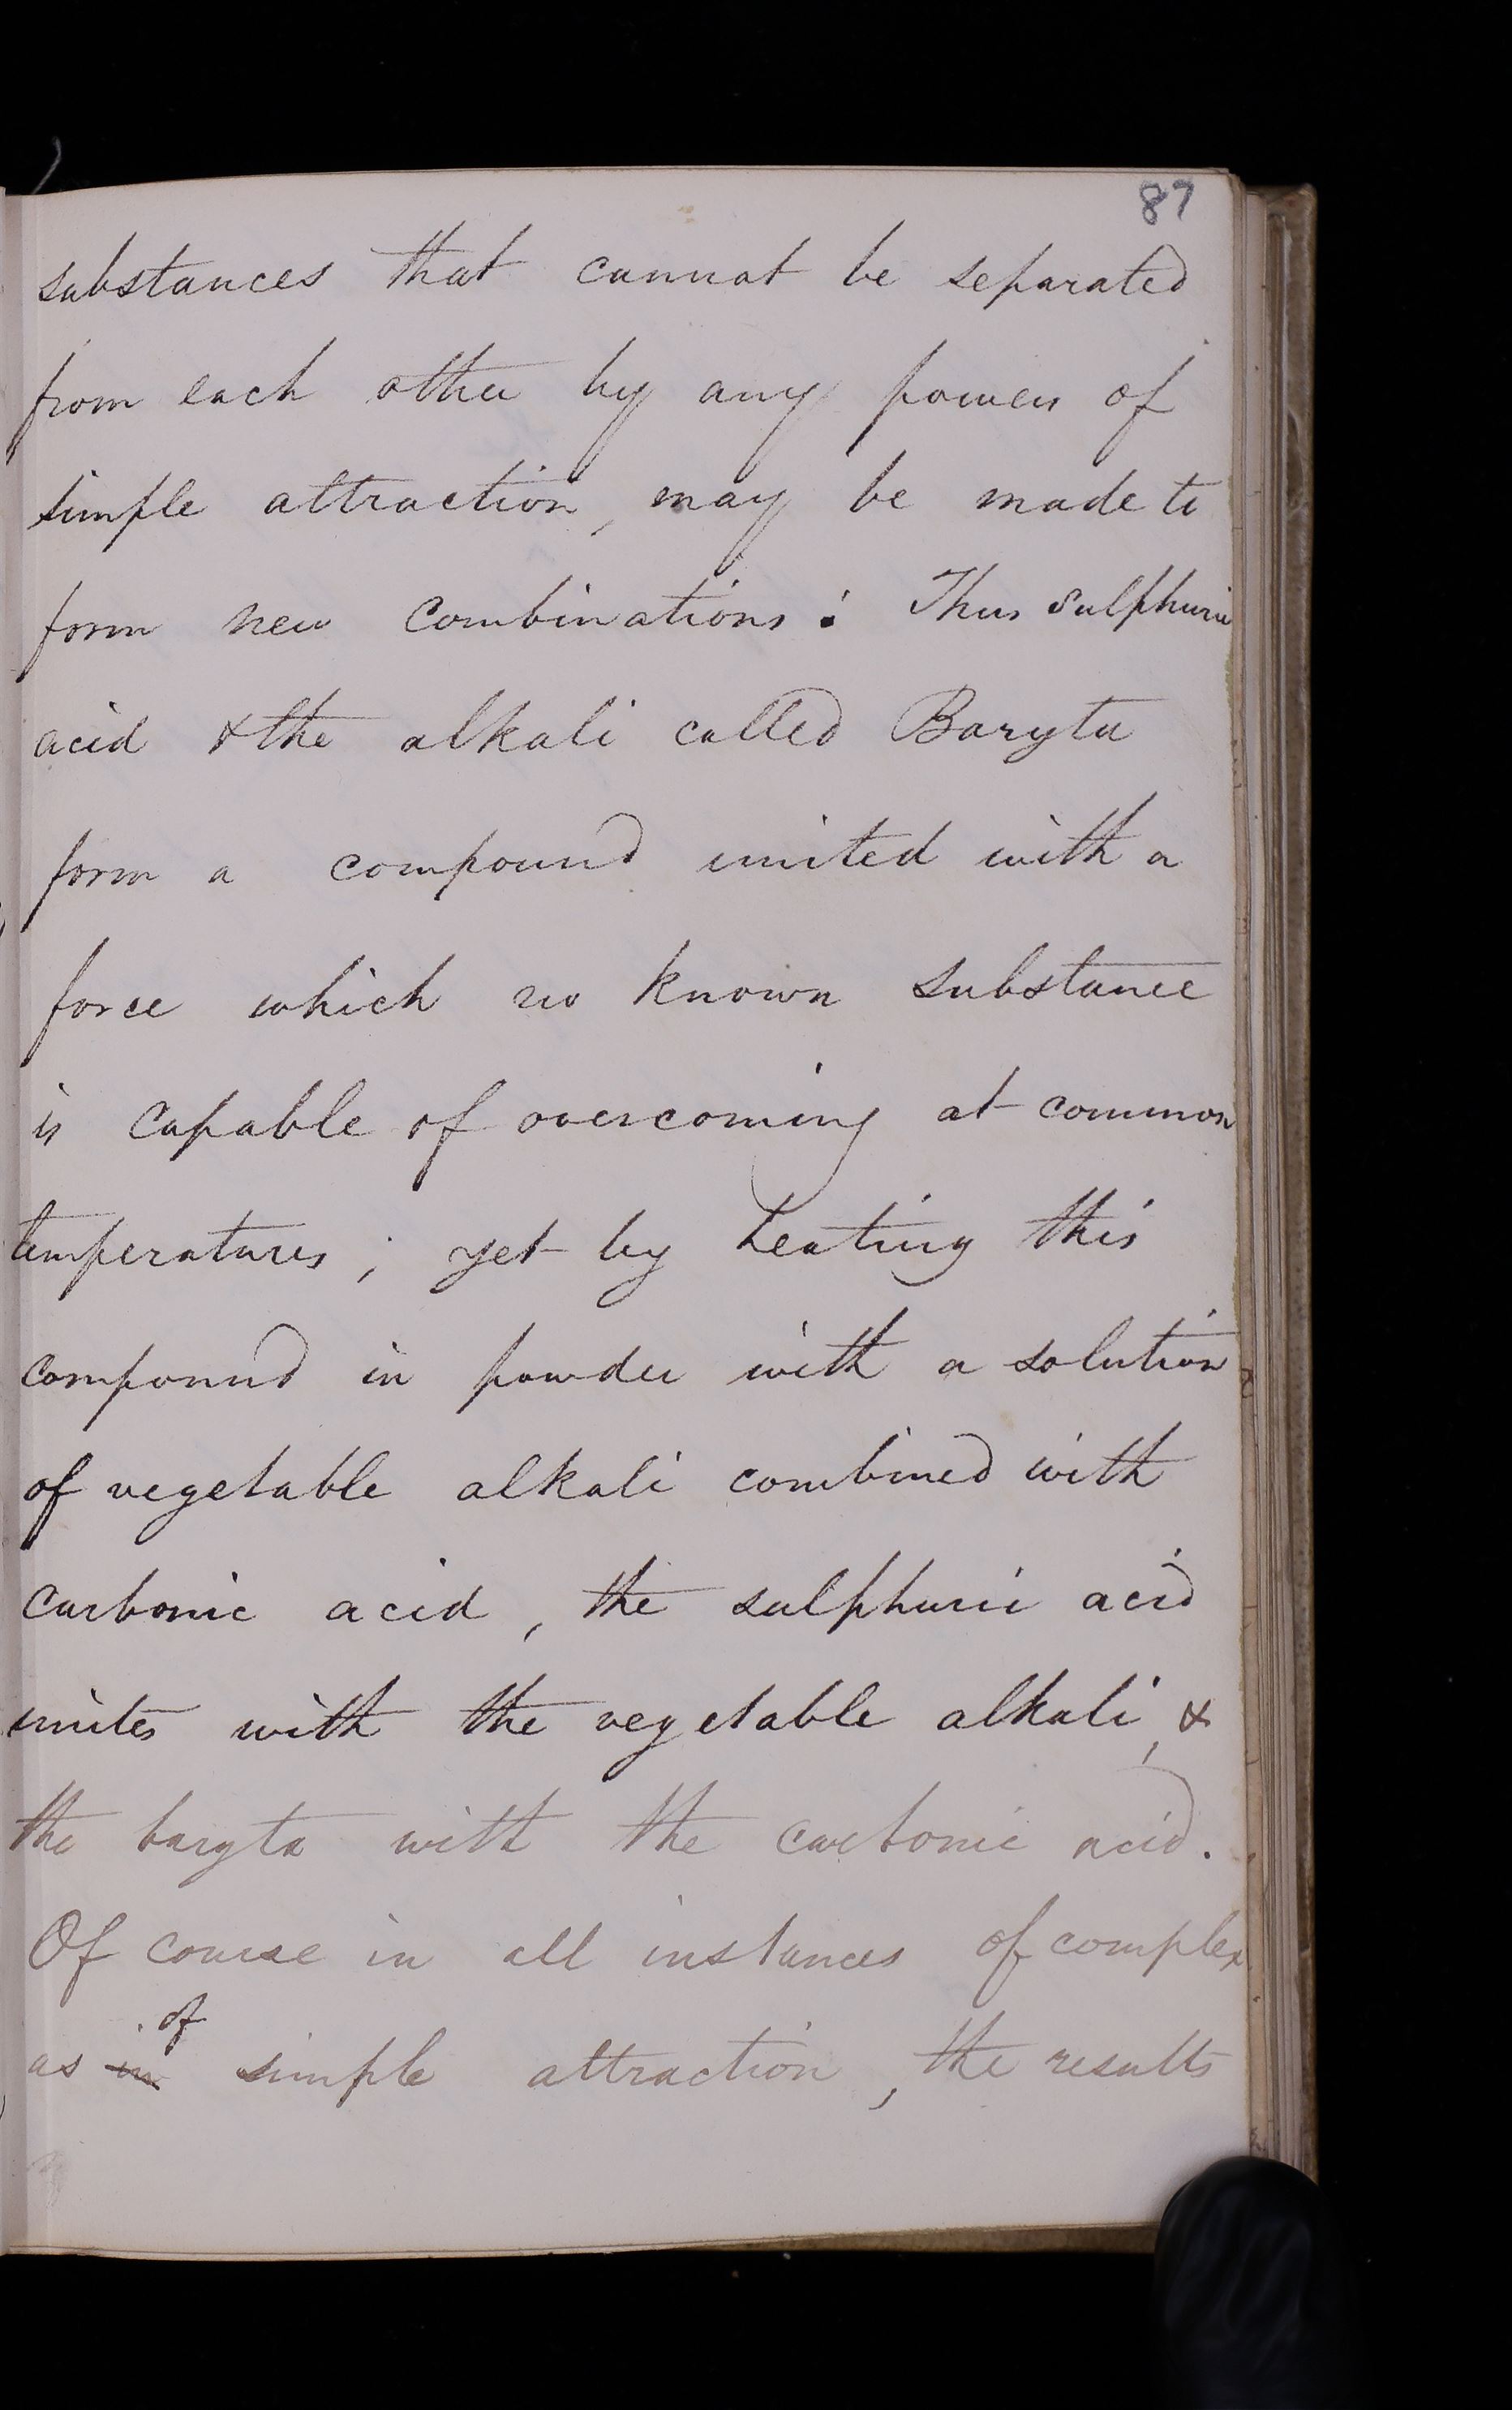 87
substances that cannot be separated
from each other by any powers of
simple attraction, may be made to
form new combinations: Thus Sulphuric
acid & the alkali called Baryta
form a compound united with a
force which no known substance
is capable of overcoming at common
temperatures; yet by heating this
compound in powder with a solution
of vegetable alkali combined with
carbonic acid, the sulphuric acid
unites with the vegetable alkali, &
the baryta with the carbonic acid.
Of course in all instances of complex
of
as in simple attraction, the results